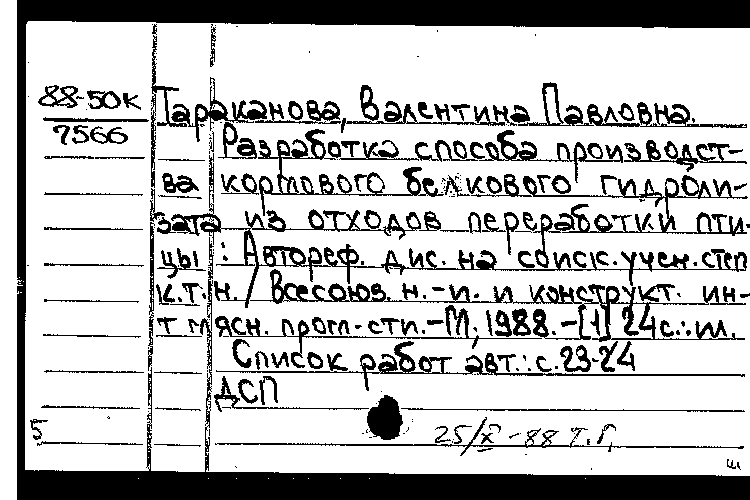 88-50К
7566
Тараканова, Валентина Павловна.
Разработка способа производст-
ва кормового белкового гидроли-
зата из отходов переработки пти-
цы : Автореф. дис. на соиск. учен. степ
к.т.н. / Всесоюз. н.-и. и конструкт. ин-
т мясн. пром-сти.-М., 1988.-[1] 24 с.: ил.
Список работ авт.: с. 23-24
ДСП
5
25/X -88 Т.Г.
ш